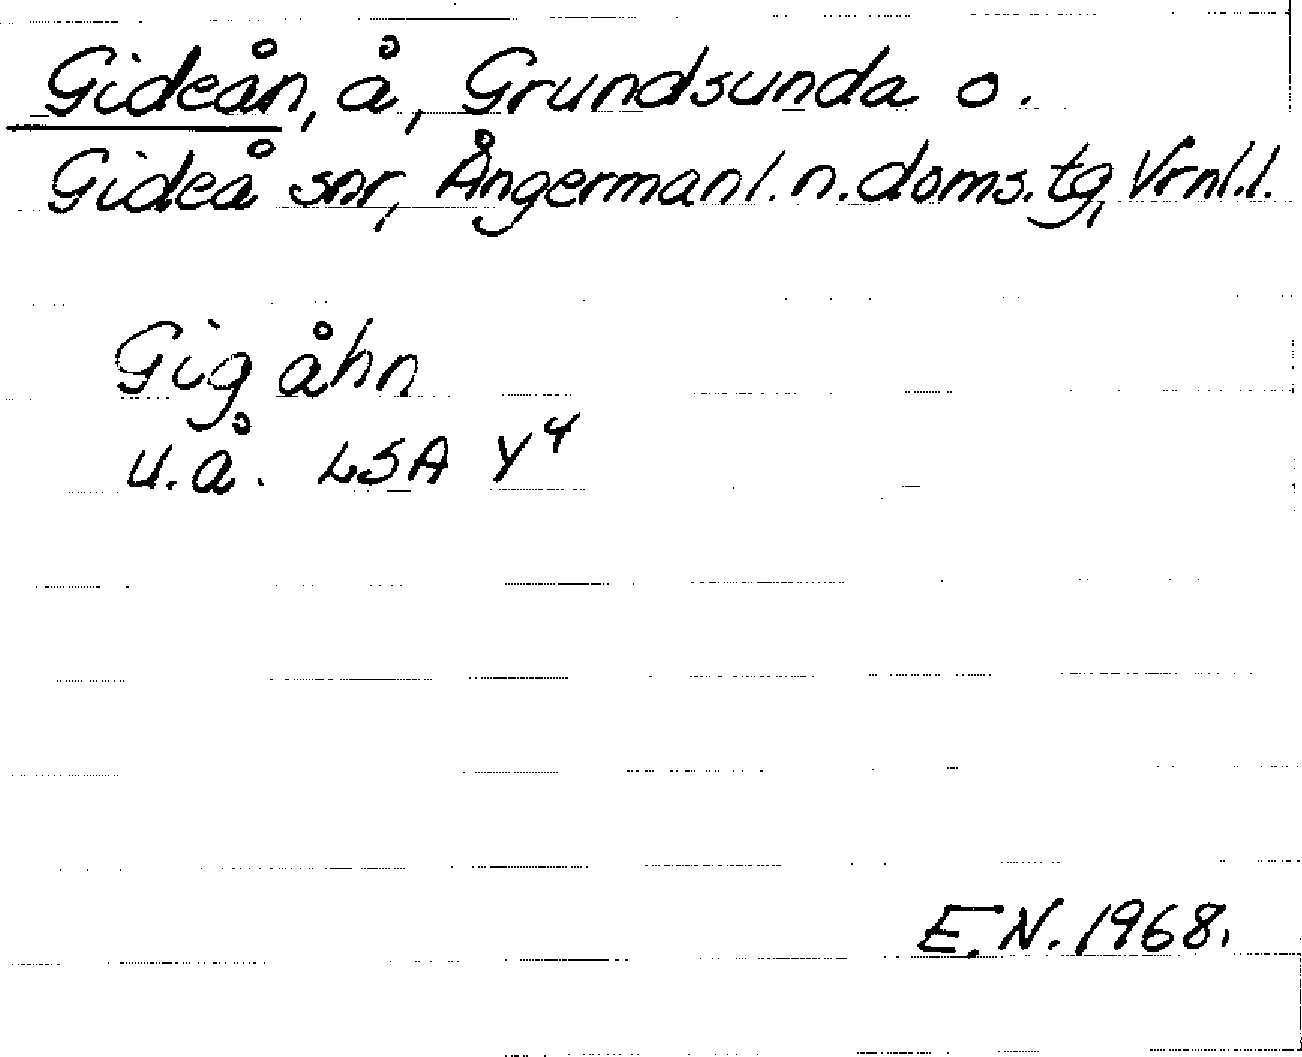 Gideån, å, Grundsunda o.
Gideå snr, Ångermanl. n. doms. tg, Vrnl. l.
Gig åhn
u.å. LSA Y4
E.N. 1968.